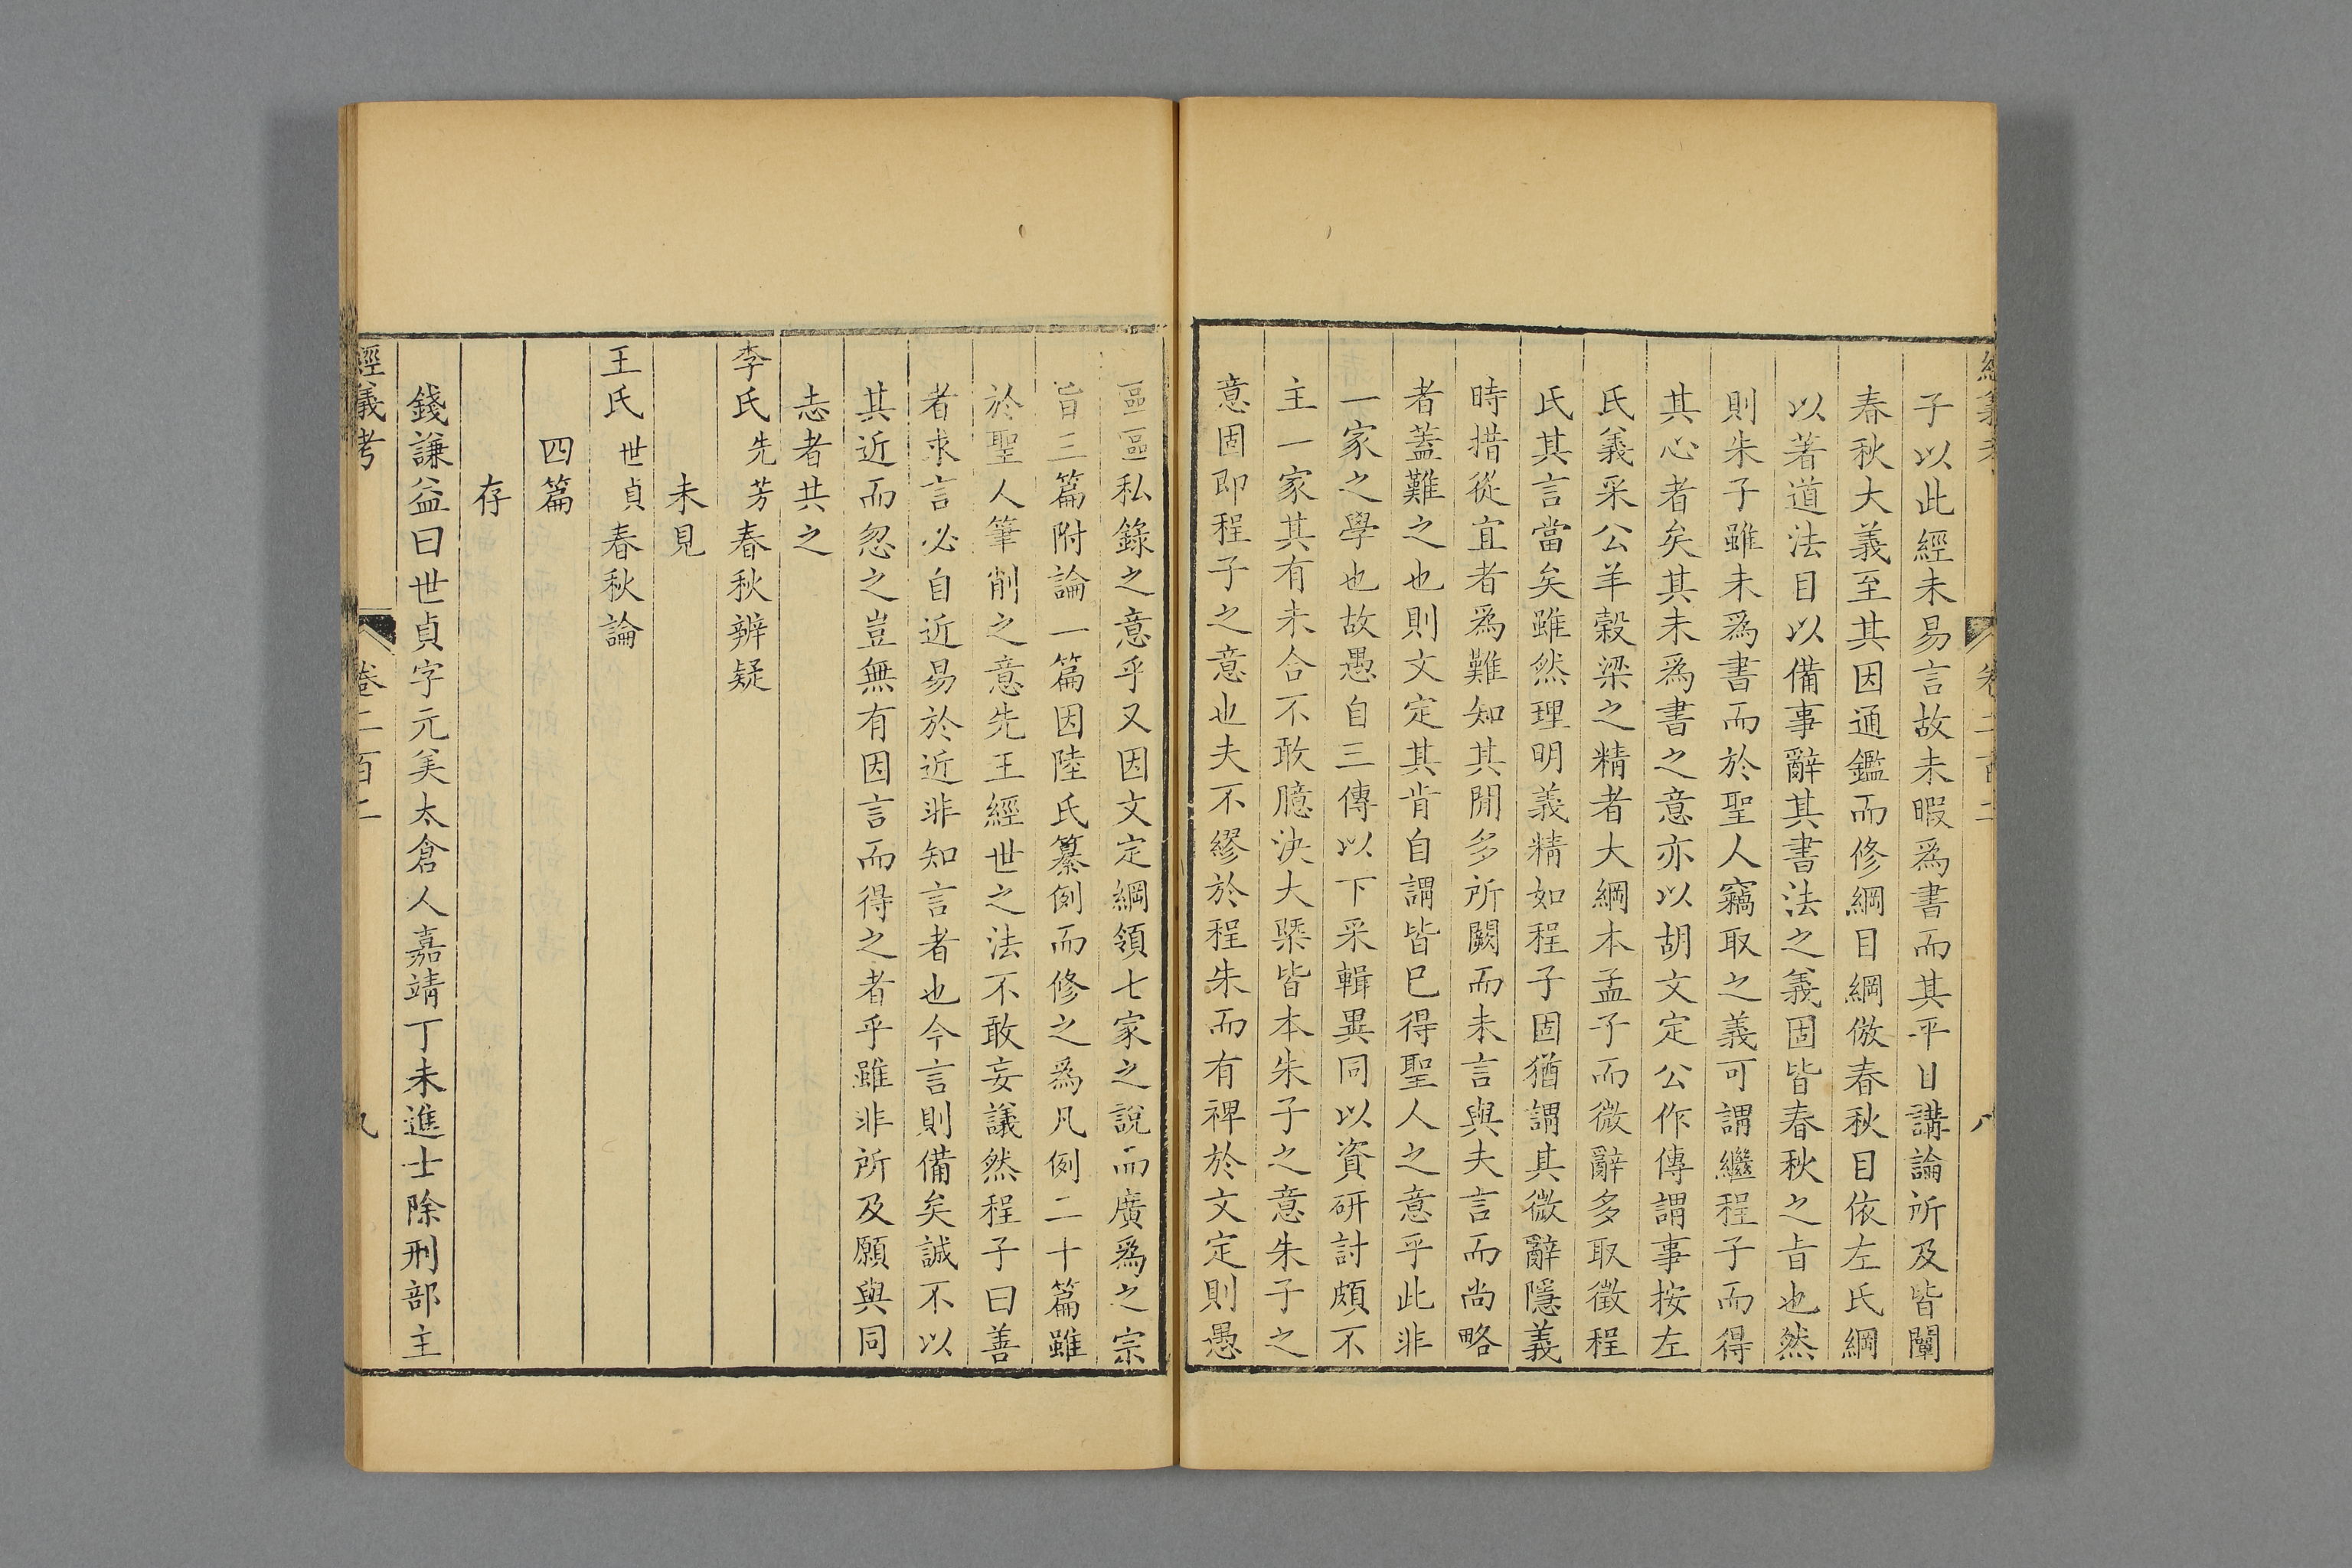 經義考
卷二百二
八
子以此經未易言故未暇爲書而其平日講論所及皆闡
春秋大義至其因通鑑而修綱目綱倣春秋目依左氏綱
以著道法目以備事辭其書法之義固皆春秋之旨也然
則朱子雖未爲書而於聖人竊取之義可謂繼程子而得
其心者矣其未爲書之意亦以胡文定公作傳謂事按左
氏義采公羊穀梁之精者大綱本孟子而微辭多取徵程
氏其言當矣雖然理明義精如程子固猶謂其微辭隱義
時措從宜者爲難知其閒多所闕而未言與夫言而尚略
者蓋難之也則文定其肯自謂皆巳得聖人之意乎此非
一家之學也故愚自三傳以下采輯異同以資研討頗不
主一家其有未合不敢臆決大槩皆本朱子之意朱子之
意固即程子之意也夫不繆於程朱而有裨於文定則愚
區區私錄之意乎又因文定綱領七家之說而廣爲之宗
旨三篇附論一篇因陸氏纂例而修之爲凡例二十篇雖
於聖人筆削之意先王經世之法不敢妄議然程子曰善
者求言必自近易於近非知言者也今言則備矣誠不以
其近而忽之豈無有因言而得之者乎雖非所及願與同
志者共之
李氏先芳春秋辨疑
未見
王氏世貞春秋論
四篇
存
錢謙益曰世貞字元美太倉人嘉靖丁未進士除刑部主
經義考
卷二百二
九